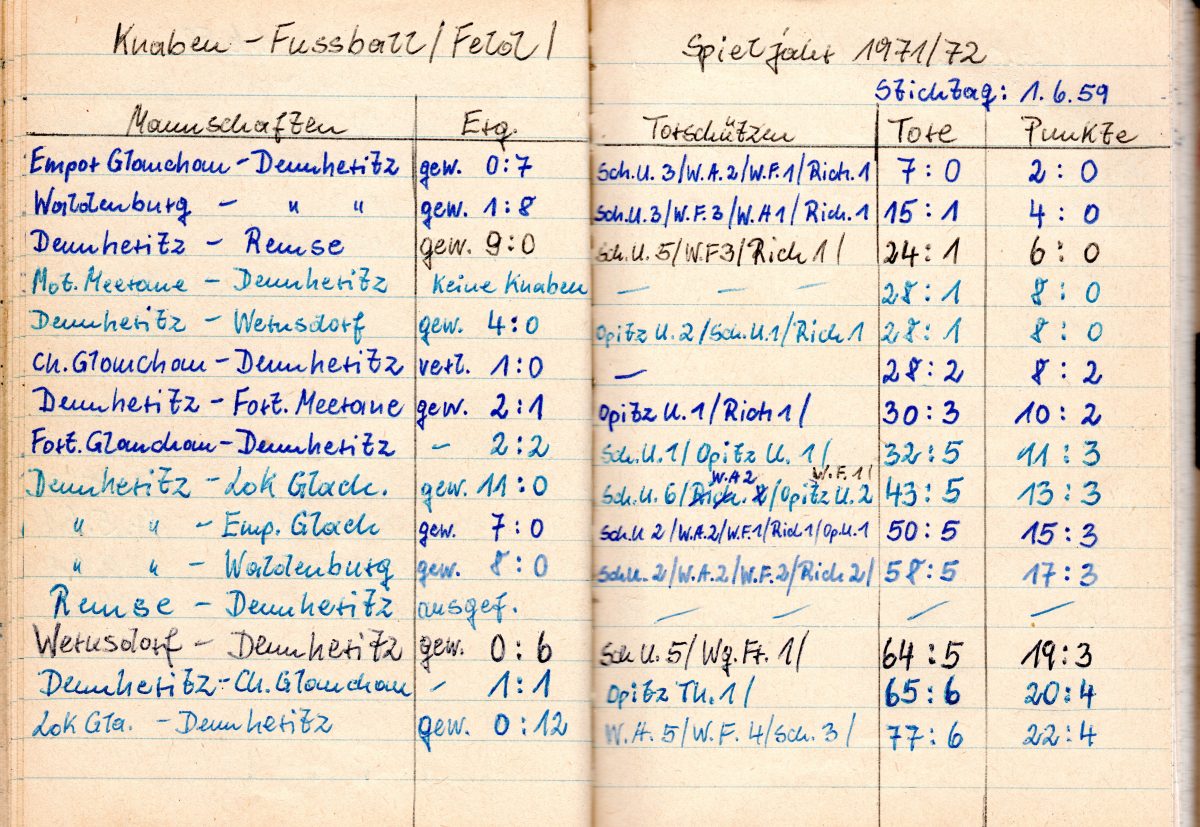 Knaben - Fussball / Feld / Spieljahr 1971/72
Stichtag: 1.6.59
Mannschaften Erg. Torschützen Tore Punkte
Empor Glauchau - Dennheritz gew. 0:7 Sch.U. 3/W.A.2/W.F.1/Rich.1 7:0 2:0
Waldenburg - " " gew. 1:8 Sch.U.3/W.F.3/W.A1/Rich.1 15:1 4:0
Dennheritz - Remse gew. 9:0 Sch.U.5/W.F3/Rich1/ 24:1 6:0
Mot. Meerane - Dennheritz Keine Knaben - - - 28:1 8:0
Dennheritz - Wernsdorf gew. 4:0 Opitz U.2/Sch.U.1/Rich1 28:1 8:0
Ch. Glauchau - Dennheritz verl. 1:0 - 28:2 8:2
Dennheritz - Fort. Meerane gew. 2:1 Opitz U.1/Rich1/ 30:3 10:2
Fort. Glauchau - Dennheritz - 2:2 Sch.U.1/Opitz U.1/ 32:5 11:3
W.A2 W.F.1/
Dennheritz - Lok Glach. gew. 11:0 Sch.U.6/Rich. 2/Opitz U.2 43:5 13:3
" " - Emp. Glach gew. 7:0 Sch.U 2/W.A.2/W.F.1/Rich1/Op.U.1 50:5 15:3
" " - Waldenburg gew. 8:0 Sch.U.2/W.A.2/W.F.2/Rich2/ 58:5 17:3
Remse - Dennheritz ausgef. - - - -
Wernsdorf - Dennheritz gew. 0:6 Sch U.5/Wg.Fr.1/ 64:5 19:3
Dennheritz - Ch. Glauchau - 1:1 Opitz Th.1/ 65:6 20:4
Lok Gla. - Dennheritz gew. 0:12 W.A.5/W.F.4/Sch.3/ 77:6 22:4